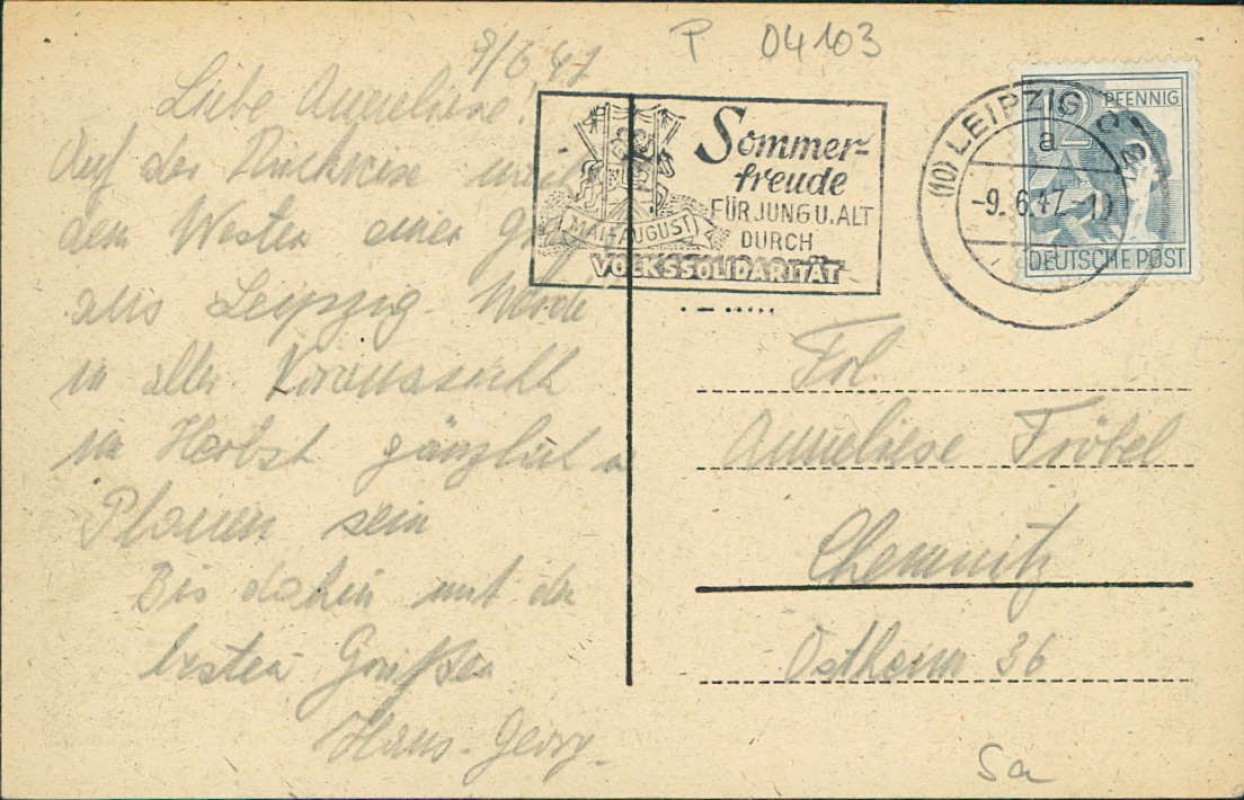 P 04103
9/6 47
Liebe Anneliese!
Auf der Rückreise
dem Westen einen
aus Leipzig. Werde
in aller Voraussicht
im Herbst gänzlich
Plauen sein
Bis dahin mit den
besten Grüßen
Hans-Georg.
Sommer-
freude
FÜR JUNG U. ALT
DURCH
VOLKSSOLIDARITÄT
MAI-AUGUST
(10) LEIPZIG C
a
-9.6.47.
12 PFENNIG
DEUTSCHE POST
Frl.
Anneliese Fröbel
Chemnitz
Ostheim 36
Sa